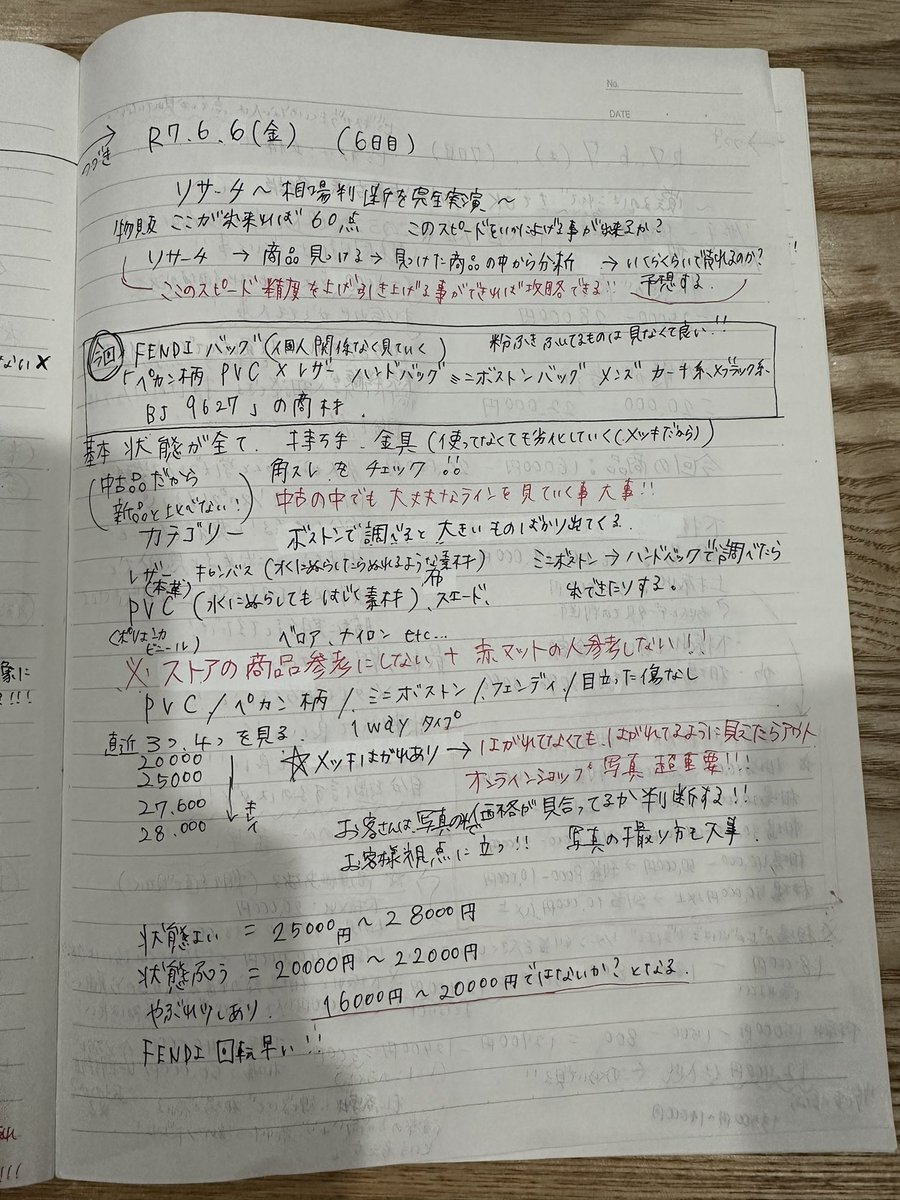 No.
DATE
つづき → R7.6.6(金) (6日目)
リサーチ〜相場判断を完全実演〜
物販 ここが出来れば60点 このスピードをいかに上げる事が出来るか?
リサーチ → 商品見つける → 見つけた商品の中から分析 → いくらくらいで売れるのか?
このスピード精度を上げ引き上げる事ができれば攻略できる!! 予想する.
今回 FENDI バッグ(個人関係なく見ていく) 粉ふき ふいてるものは見なくて良い!!
「ペカン柄 PVC×レザー ハンドバッグ ミニボストンバッグ メンズ カーキ系×ブラック系
BJ 9627」の商材.
基本 状態が全て. 持ち手. 金具(使ってなくても劣化していく(メッキだから)
(中古品だから 角スレをチェック!!
新品と比べない!) 中古の中でも大丈夫なラインを見ていく事大事!!
カテゴリー ボストンで調べると大きいものばかり出てくる.
レザー(本革) キャンバス(水にぬらしたらぬれるような素材) ミニボストン→ハンドバッグで調べたら
PVC(水にぬらしてもはじく素材)、布 スエード、 出てきたりする.
(ポリ塩化ビニール) ベロア、ナイロン etc...
※ストアの商品参考にしない + 赤マットの人参考しない!!!
PVC/ペカン柄/ミニボストン/フェンディ/目立った傷なし
直近3つ.4つを見る. 1way タイプ
20000
25000
27.600
28.000
キレイ
☆メッキはがれあり → はがれてなくても、はがれてるように見えたらアウト
オンラインショップ 写真 超重要!!!
お客さんは写真の 価格が見合ってるか判断する!!
お客様視点に立つ!! 写真の撮り方も大事.
状態よい = 25000円〜28000円
状態ふつう = 20000円〜22000円
やぶれ少しあり. 16000円〜20000円ではないか?となる.
FENDI 回転早い!!
ない×
象に
!!!
!!!